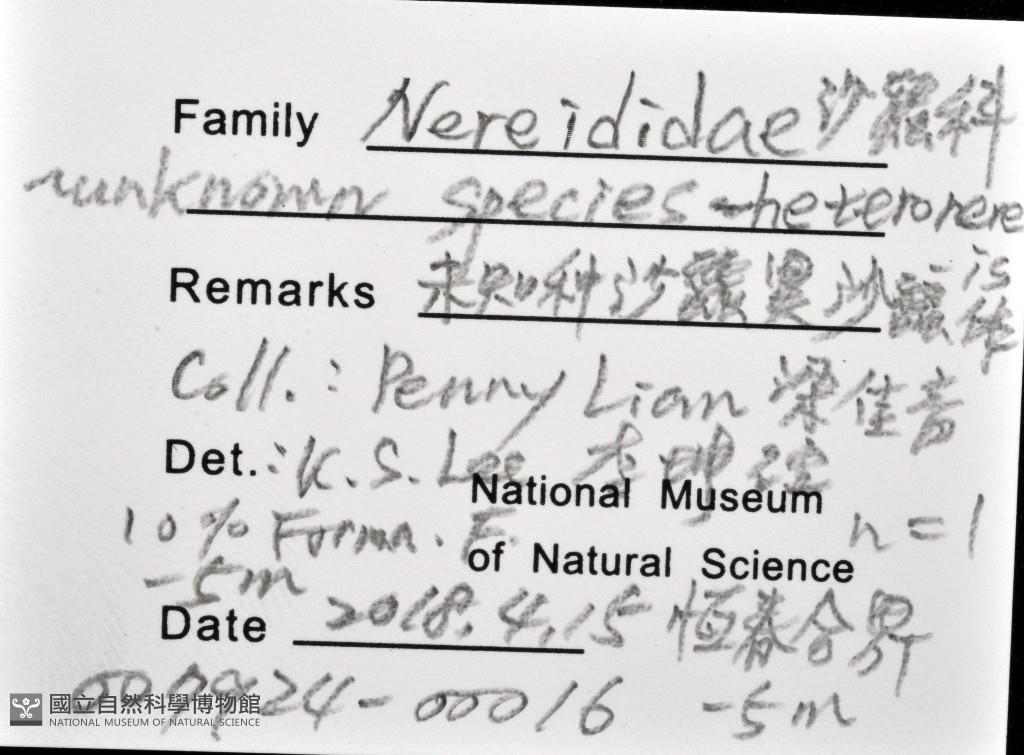 Family Nereididae 沙蠶科
unknown species-heteronereis
Remarks 未知種沙蠶異沙蠶体
Coll.: Penny Lian 梁佳音
Det.: K.S. Lee 李坤瑄
National Museum
10% Forma. F. n=1
of Natural Science
-5m
Date 2018.4.15 恒春合界
-00016 -5m
國立自然科學博物館
NATIONAL MUSEUM OF NATURAL SCIENCE